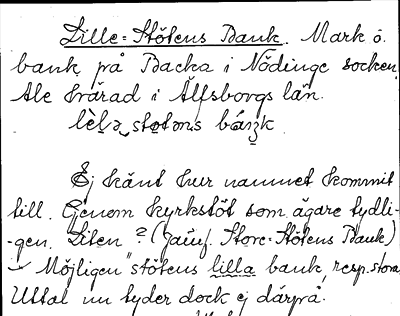 Lille-Stötens Bank. Mark o.
bank på Backa i Nödinge socken
Ale härad i Älfsborgs län.
lèlə støtəns báŋk
Ej känt hur namnet kommit
till. Genom kyrkstöt som ägare tydli-
-gen. Liten? (Jämf. Store-Stötens Bank)
– Möjligen "stötens lilla bank, resp. stora
Uttal nu tyder dock ej därpå.